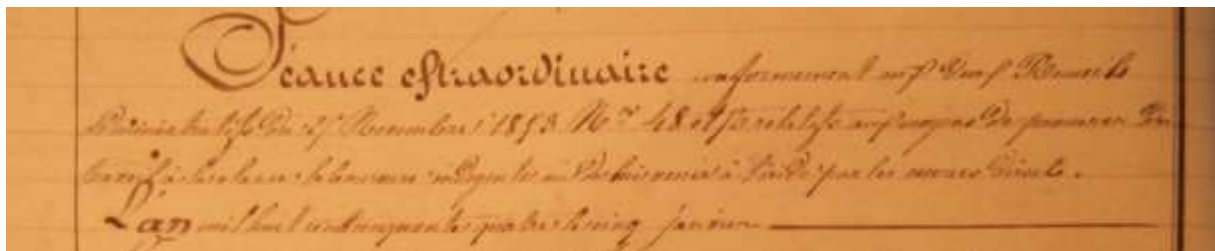 Séance extraordinaire conformement aux deux Recueils
Administratifs du 25 Novembre 1853 Nos 48 et relatifs aux moyens de procurer du
travail à la classe laborieuse indigente à l'aide par les secours directs.
L'an mil huit cent cinquante quatre le cinq janvier